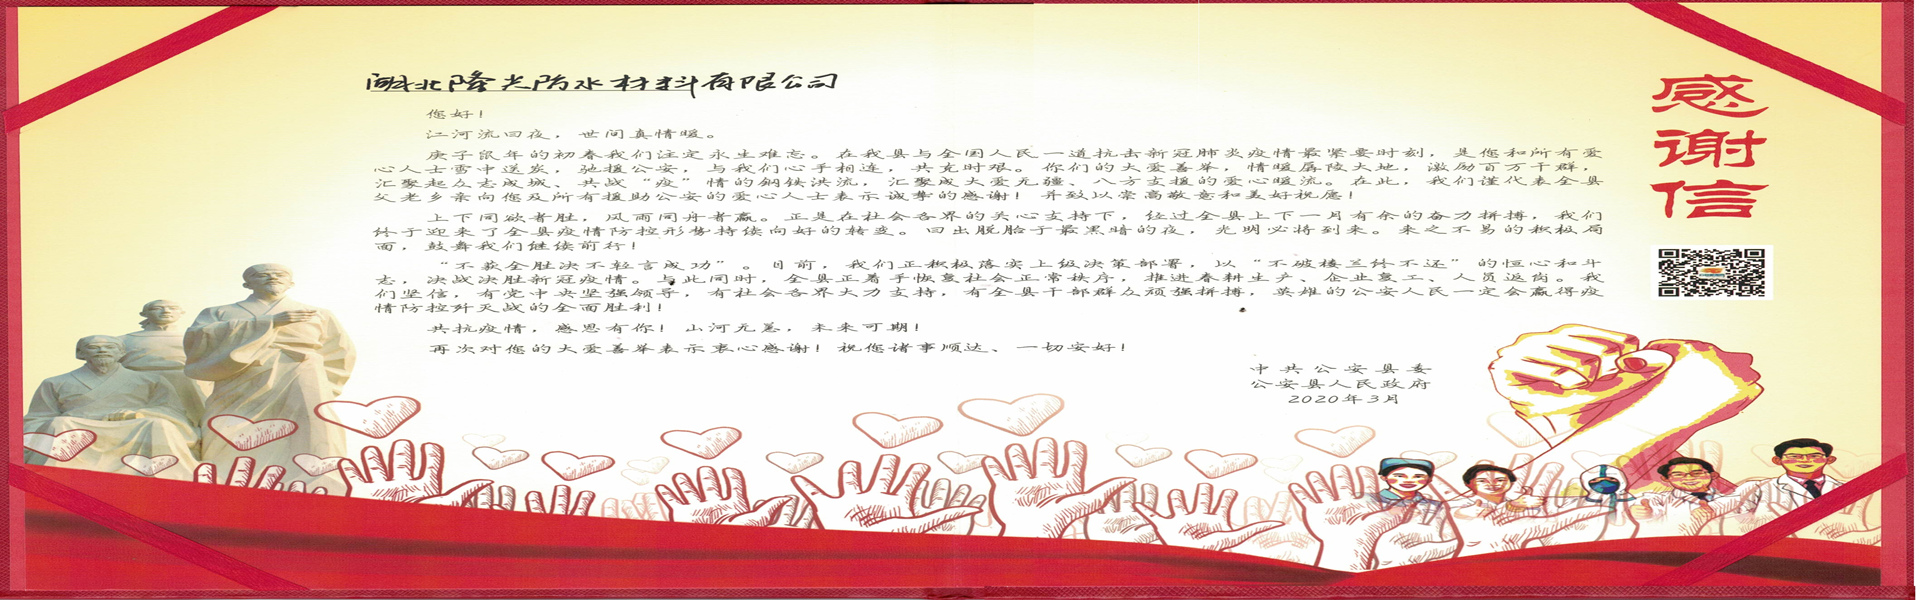 湖北隆光防水材料有限公司
感谢信
您好！
江河流日夜，世间真情暖。
庚子鼠年的初春我们注定永生难忘。在我县与全国人民一道抗击新冠肺炎疫情最紧要时刻，是您和所有爱
心人士雪中送炭，驰援公安，与我们心手相连，共克时艰。你们的大爱善举，情暖孱陵大地，激励百万干群，
汇聚起众志成城、共战“疫”情的钢铁洪流，汇聚成大爱无疆、八方支援的爱心暖流。在此，我们谨代表全县
父老乡亲向您及所有援助公安的爱心人士表示诚挚的感谢！并致以崇高敬意和美好祝愿！
上下同欲者胜，风雨同舟者赢。正是在社会各界的关心支持下，经过全县上下一月有余的奋力拼搏，我们
终于迎来了全县疫情防控形势持续向好的转变。日出脱胎于最黑暗的夜，光明必将到来。来之不易的积极局
面，鼓舞我们继续前行！
“不获全胜决不轻言成功”。目前，我们正积极落实上级决策部署，以“不破楼兰终不还”的恒心和斗
志，决战决胜新冠疫情。与此同时，全县正着手恢复社会正常秩序，推进春耕生产、企业复工、人员返岗。我
们坚信，有党中央坚强领导，有社会各界大力支持，有全县干部群众顽强拼搏，英雄的公安人民一定会赢得疫
情防控歼灭战的全面胜利！
共抗疫情，感恩有你！山河无恙，未来可期！
再次对您的大爱善举表示衷心感谢！祝您诸事顺达、一切安好！
中共公安县委
公安县人民政府
2020年3月